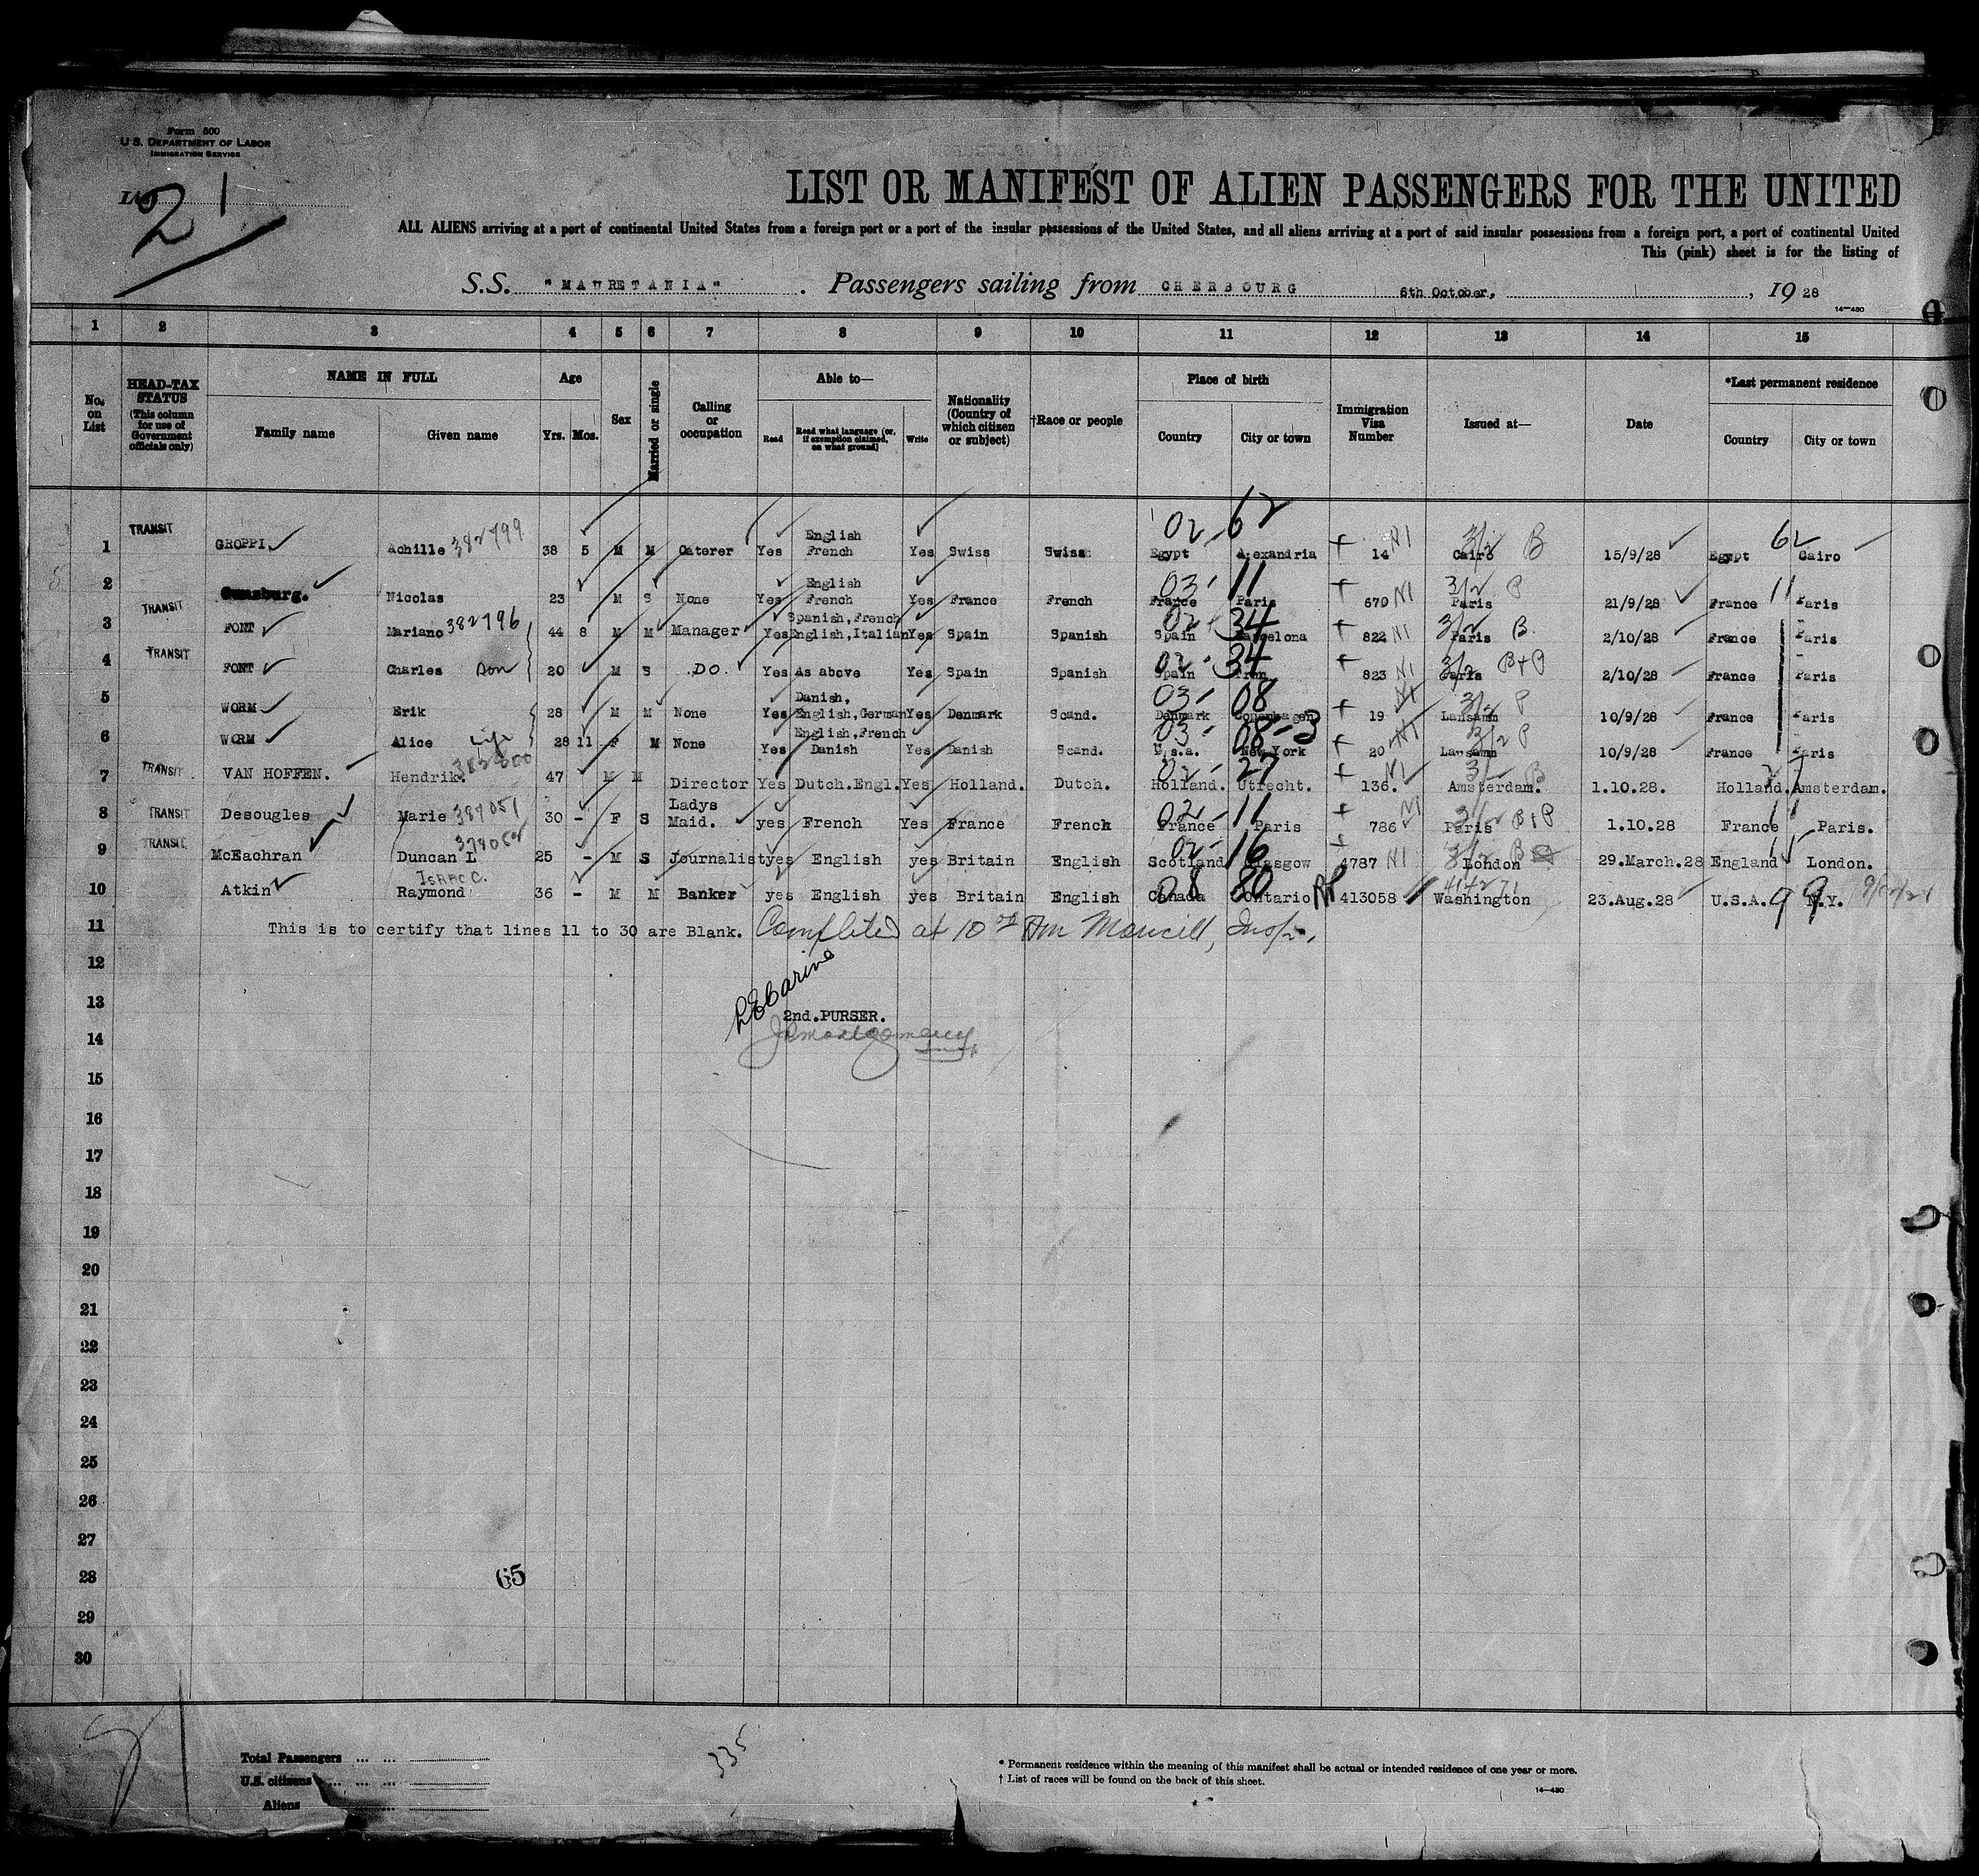 Form 500
U.S. DEPARTMENT OF LABOR
IMMIGRATION SERVICE
List 21
LIST OR MANIFEST OF ALIEN PASSENGERS FOR THE UNITED
ALL ALIENS arriving at a port of continental United States from a foreign port or a port of the insular possessions of the United States, and all aliens arriving at a port of said insular possessions from a foreign port, a port of continental United
This (pink) sheet is for the listing of
S.S. "MAURETANIA". Passengers sailing from CHERBOURG 6th October, , 19 28
14—430
1 2 3 4 5 6 7 8 9 10 11 12 13 14 15
No. on List HEAD-TAX STATUS (This column for use of Government officials only) NAME IN FULL Family name Given name Age Yrs. Mos. Sex Married or single Calling or occupation Able to— Read Read what language (or, if exemption claimed, on what ground) Write Nationality (Country of which citizen or subject) †Race or people Place of birth Country City or town Immigration Visa Number Issued at— Date *Last permanent residence Country City or town
1 TRANSIT GROPPI Achille 382799 38 5 M M Caterer Yes English French Yes Swiss Swiss 02-62 Egypt Alexandria 14 NI 3/2 Cairo B 15/9/28 Egypt 62 Cairo
2 Gunzburg. Nicolas 23 M S None Yes English French Yes France French 03-11 France Paris 670 NI 3/2 Paris P 21/9/28 France 11 Paris
3 TRANSIT FONT Mariano 382796 44 8 M M Manager Yes Spanish, French English, Italian Yes Spain Spanish 02-34 Spain Barcelona 822 NI 3/2 Paris B 2/10/28 France Paris
4 TRANSIT FONT Charles Son 20 M S DO. Yes As above Yes Spain Spanish 02-34 Spain 823 NI 3/2 Paris B+P 2/10/28 France Paris
5 WORM Erik 28 M M None Yes Danish, English, German Yes Denmark Scand. 03-08 Denmark Copenhagen 19 NI 3/2 Lausann P 10/9/28 France Paris
6 WORM Alice wife 28 11 F M None Yes English, French Danish Yes Danish Scand. 03-08-3 U.s.a. New York 20 NI 3/2 Lausann P 10/9/28 France Paris
7 TRANSIT VAN HOFFEN. Hendrik. 382800 47 M M Director Yes Dutch.Engl. Yes Holland. Dutch. 02-27 Holland. Utrecht. 136. NI 3/2 Amsterdam. B 1.10.28. Holland. Amsterdam.
8 TRANSIT Desougles Marie 387051 30 - F S Ladys Maid. yes French Yes France French 02-11 France Paris 786 NI 3/2 Paris B+P 1.10.28 France 11 Paris.
9 TRANSIT McEachran Duncan L 25 - M S Journalist yes English yes Britain English 02-16 Scotland Glasgow 4787 NI 3/2 London B 29.March.28 England 15 London.
10 Atkin ISAAC C. Raymond 36 - M M Banker yes English yes Britain English 08 80 Canada Ontario RP 413058 414271 Washington 23.Aug.28 U.S.A. 99 N.Y.
11 This is to certify that lines 11 to 30 are Blank. Completed at 10
12
13 2nd.PURSER.
14 Montgomery
15
16
17
18
19
20
21
22
23
24
25
26
27
28 65
29
30
Total Passengers ... ...
U.S. citizens ... ... ...
Aliens ...
335
* Permanent residence within the meaning of this manifest shall be actual or intended residence of one year or more.
† List of races will be found on the back of this sheet.
14—430